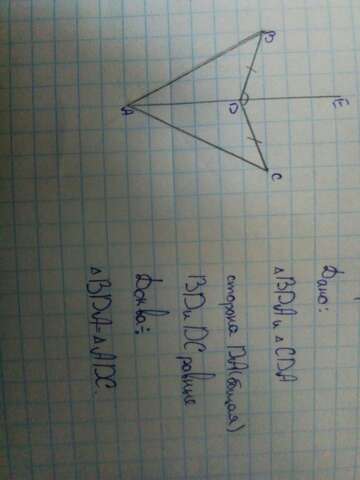 B
A
D
E
C
Дано:
△BDA и △CDA
сторона DA(общая)
BD и DC равные
Док-ва:
△BDA=△ADC.